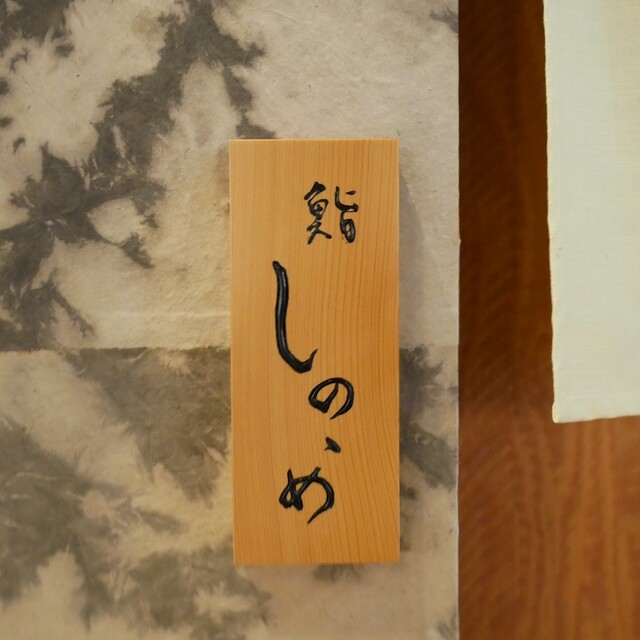 鮨 しのゝめ